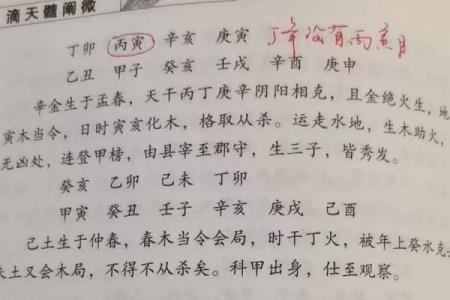 滴天髓阐微
丁卯 丙寅 辛亥 庚寅 丁年没有丙寅月
乙丑 甲子 癸亥 壬戌 辛酉 庚申
辛金生于孟春，天干丙丁庚辛阴阳相克，且金绝火生，地
寅木当令，日时寅亥化木，格取从杀。运走水地，生木助火，
无凶处，连登甲榜，由县宰至郡守，生三子，皆秀发。
癸亥 乙卯 己未 丁卯
甲寅 癸丑 壬子 辛亥 庚戌 己酉
己土生于仲春，春木当令会局，时干丁火，被年上癸水克
未土又会木局，不得不从杀矣。科甲出身，仕至观察。